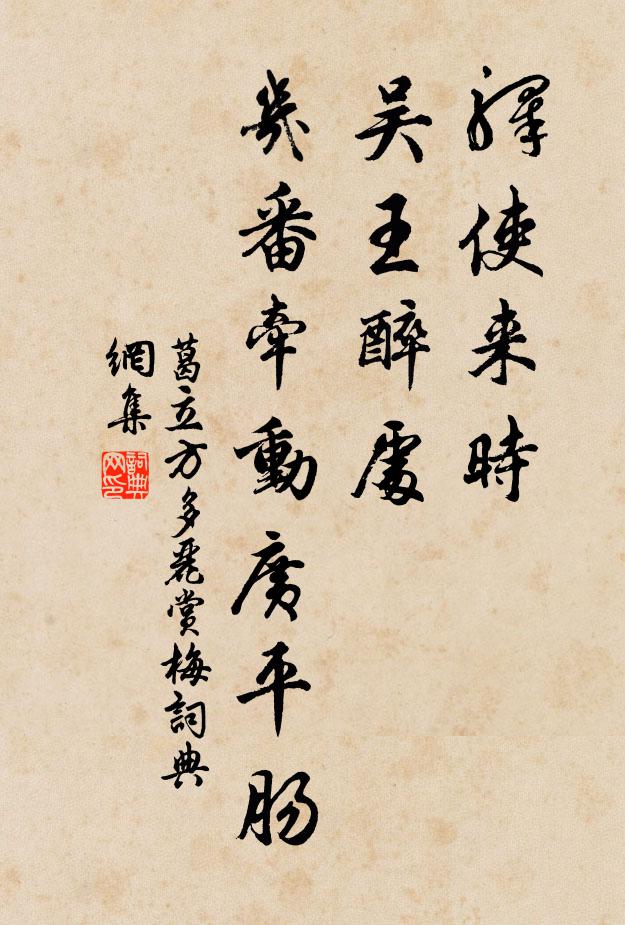 驛使来時
吴王醉處
幾番牽動廣平腸
葛立方多麗賞梅詞典
網集
詞典
网印